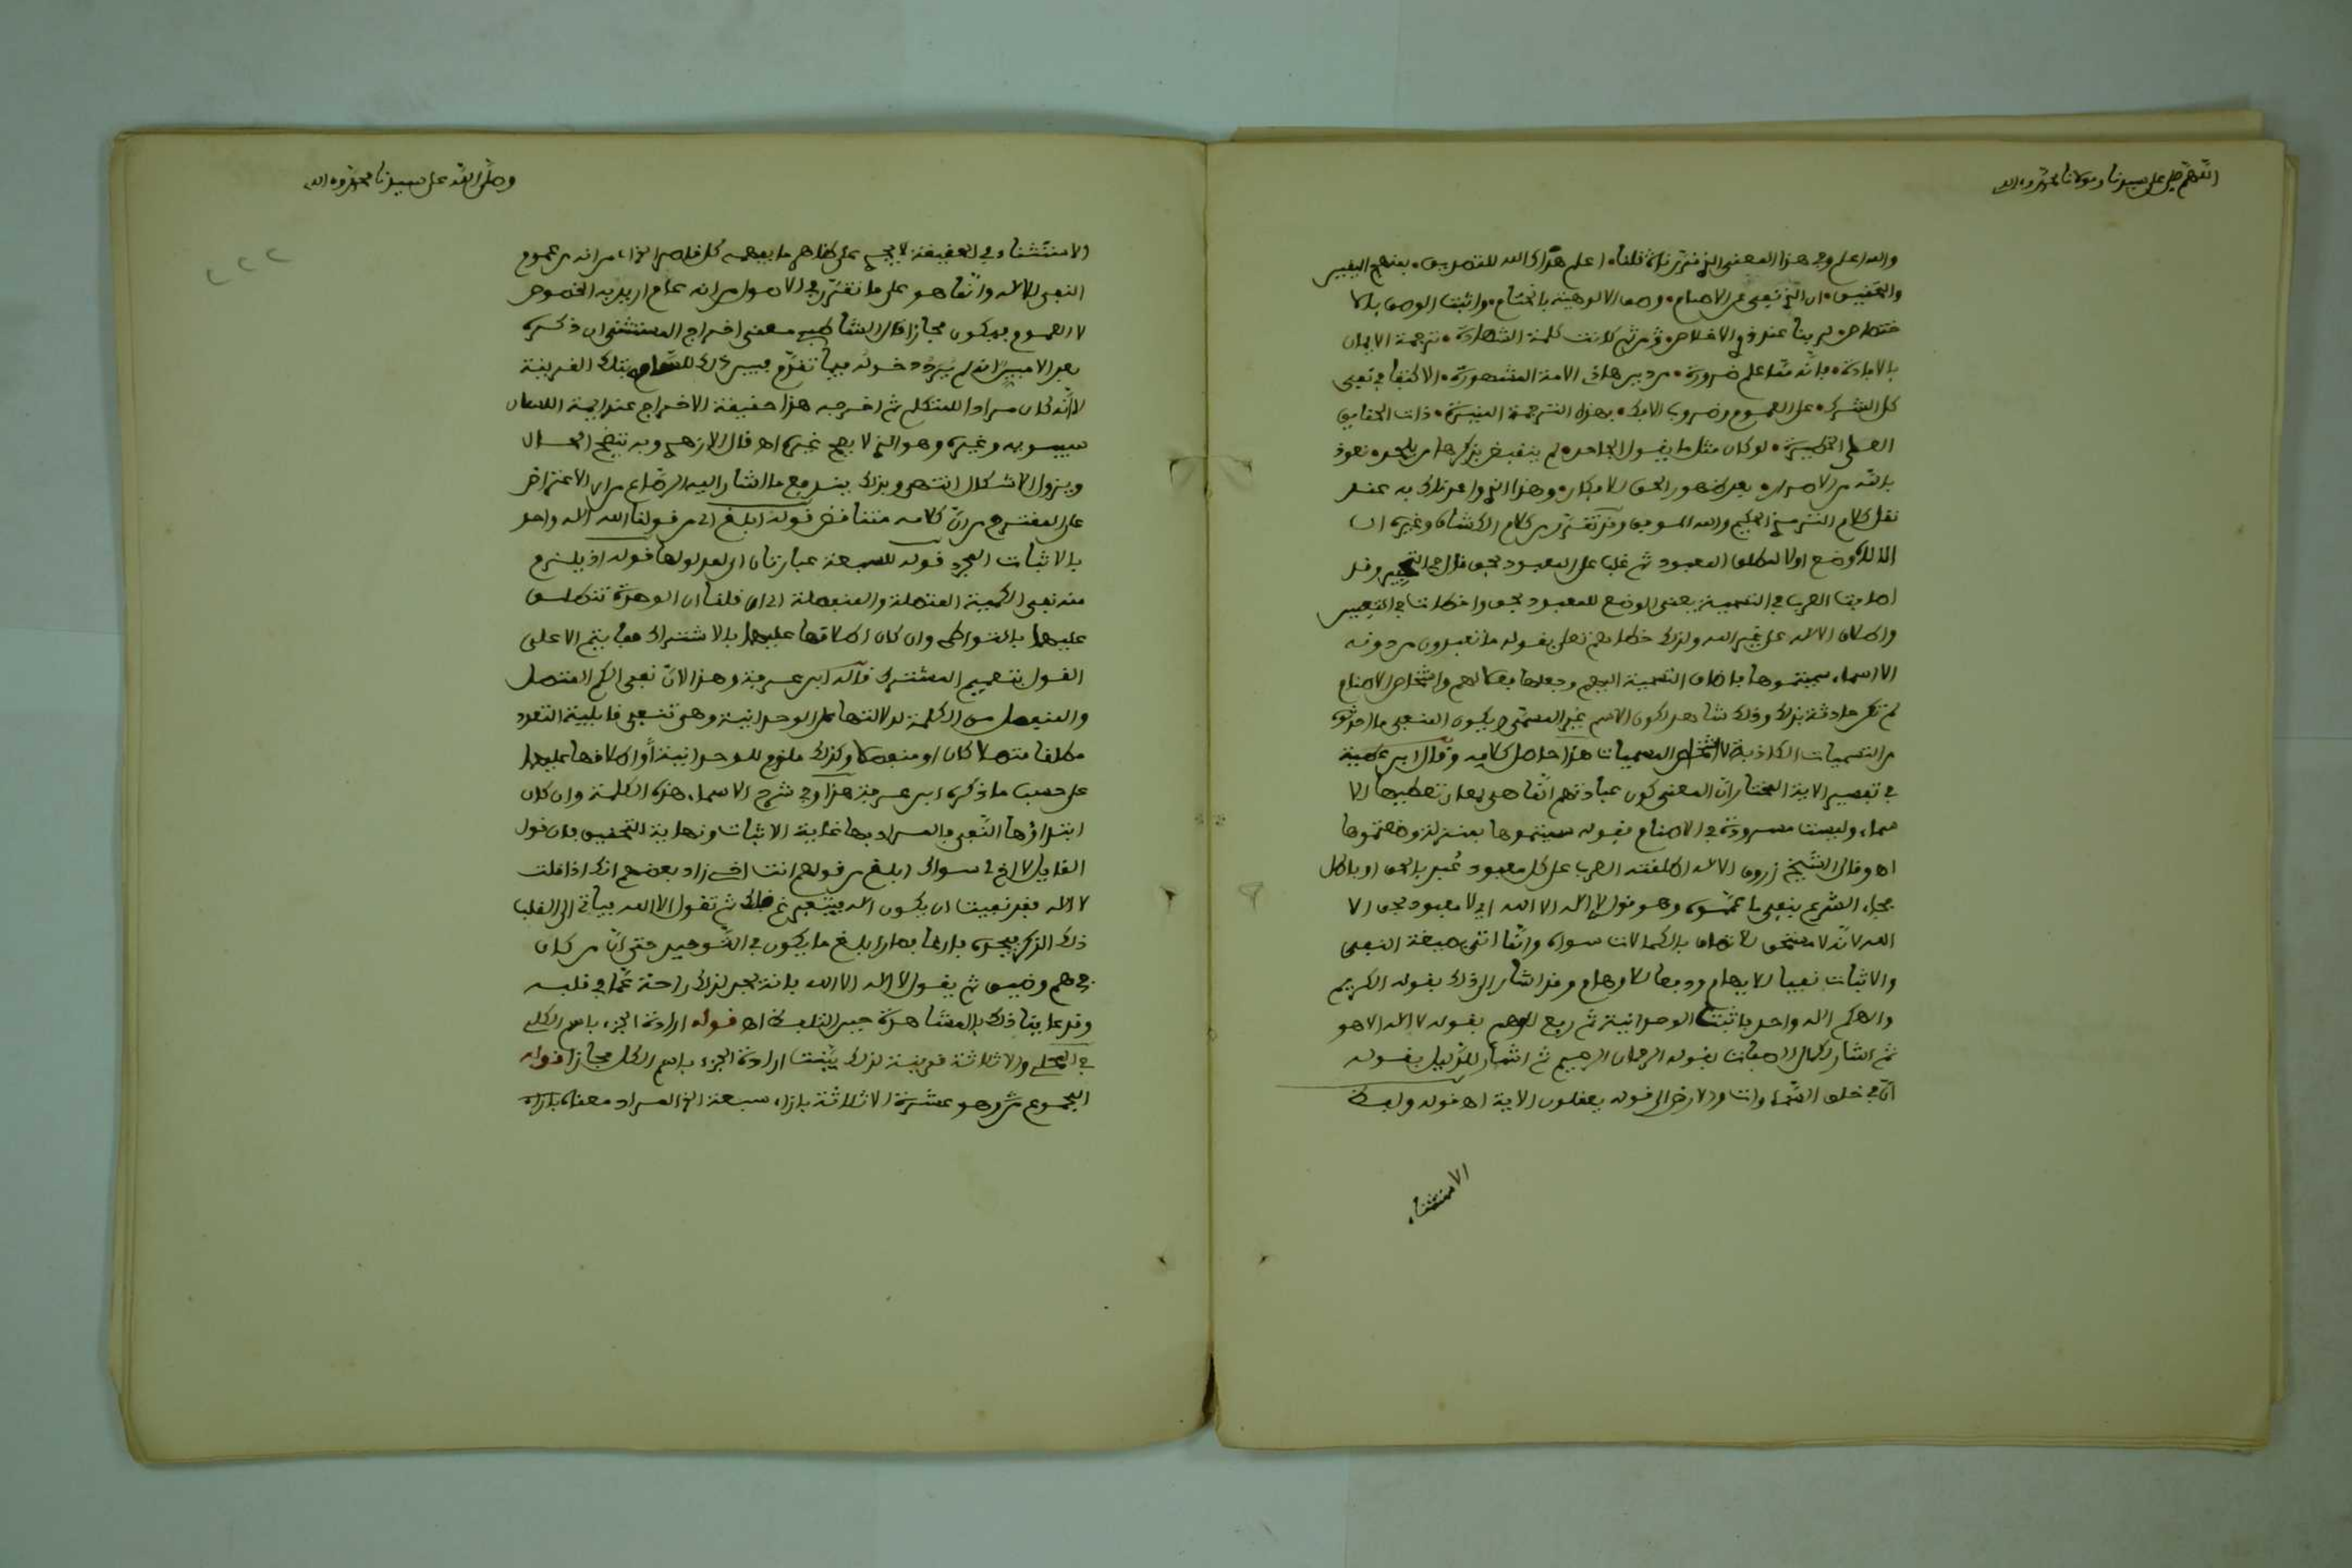 اللهم صل على سيدنا ومولانا محمد وءاله
والله اعلم وفي هذا المعنى الذي قررناه قلنا اعلم هداك الله للتصديق بمنهج اليقين
والتحقيق ان الذي نفي عن الاصنام وصف الالوهية
بالافادة فانه مما علم ضرورة من دين هاذه الامة المشهورة الاكتفا في نفي
كل الشرك على العموم بهذه الترجمة ذات الحقايق
لو كان مثل ما يقول الجاحد لم ينقبض بذكرها من يلحد نعوذ
بالله من الاصرار بعد ظهور الحق للابكار وهذا الذي واعدناك به عند
نقل كلام الترمذي الحكيم والله الموفق وقد تقرر من كلام الكشاف وغيره ان
الالاه وضع اولا لمطلق المعبود ثم غلب على المعبود بحق
اصابت العرب في التسمية يعني الوضع للمعبود بحق واخطات في التعيين
واطلاق الاله على غير الله ولذلك خطاهم تعلى بقوله ما تعبدون من دونه
الا اسماء سميتموها باضاف التسمية اليهم وجعلها فعلا لهم واشخاص الاصنام
لم تكن حادثة بذلك وذلك شاهد لكون الاسم غير المسمى ويكون المنفي ما احدثوه
من التسميات الكاذبة لا اشخاص المسميات هذا حاصل كلامه وقال ابن عطية
في تفسير الاية المختار ان المعنى كون عبادتهم انما هي لمعان تعطيها الا
سماء وليست موجودة في الاصنام فقوله سميتموها بمنزلة وضعتموها
اه وقال الشيخ زروق الاله اطلقته العرب على كل معبود عبد بالحق او باطل
فجاء الشرع بنفي ما عمموه وهو قول لا اله الا الله اي لا معبود بحق الا
الله لانه لا مستحق للاتصاف بالكمالات سواه وانما اتي بصيغة النفي
والاثبات نفيا للابهام ودفعا للاوهام وقد اشار الى ذلك بقوله الكريم
والاهكم اله واحد فاثبت الوحدانية ثم رفع الوهم بقوله لا اله الا هو
ثم اشار لكمال الصفات بقوله الرحمان الرحيم ثم اشار للدليل بقوله
ان في خلق السماوات والارض الى قوله يعقلون الاية اه قوله ولفظ
الاستثناء
وصلى الله على سيدنا محمد وءاله
٢٢٢
والاستثناء في الحقيقة لا يجي على ظاهر ما يفهمه كل قاصر انه من عموم
النفي للاله وانما هو على ما تقرر في الاصول من انه عام اريد به الخصوص
لا العموم فيكون مجازا قال الشاطبي معنى اخراج المستثنى ان ذكره
بعد الا مبين انه لم يرد دخوله فيما تقدم فبين ذلك للسامع بتلك القرينة
لا انه كان مرادا للمتكلم ثم اخرجه هذا حقيقة الاخراج عند ايمة اللسان
سيبويه وغيره وهو الذي لا يصح غيره اه قال الازهري وبه يتضح الحال
ويزول الاشكال انتهى وبذلك يندفع ما اشار اليه الرصاع من الاعتراض
على المقترح من ان كلامه متناقض قوله ابلغ الخ من قولنا الله اله واحد
بالاثبات المجرد قوله للسبعة عبارتان اي لمدلولها قوله اذ يلزم
منه نفي الكمية المتصلة والمنفصلة الخ ان قلنا ان الوحدة تنطلق
عليهما بالتواطي وان كان اطلاقها عليهما بالاشتراك فما يتم الا على
القول بتعميم المشترك قاله ابن عرفة وهذا لان نفي الكم المتصل
والمنفصل من الكلمة لدلالتها على الوحدانية وهي تنفي قابلية التعدد
مطلقا متصلا كان او منفصلا وكذلك ملزوم للوحدانية واطلاقها عليهما
على حسب ما ذكره ابن عرفة هذا وفي شرح الاسماء هذه الكلمة وان كان
ابتداؤها النفي فالمراد بها غاية الاثبات ونهاية التحقيق فان قول
القايل لا اخ لي سواك ابلغ من قولهم انت اخي زاد بعضهم انك اذا قلت
لا اله فقد نفيت ان يكون اله ثم تقول الا الله فياتي الى القلب
ذلك الذكر فيجده فارغا فصار ابلغ ما يكون في التوحيد حتى ان من كان
في هم وضيق ثم يقول لا اله الا الله فانه يجد لذلك راحة مما في قلبه
وقد عاينا ذلك بالمشاهدة حين التلفظ اه قوله ارادة الجزء باسم الكل
في المحلي والا ثلاثة قرينة لذلك بينت ارادة الجزء باسم الكل مجازا قوله
المجموع ش وهو عشرة الا ثلاثة بازاء سبعة الخ المراد معناه بازاء